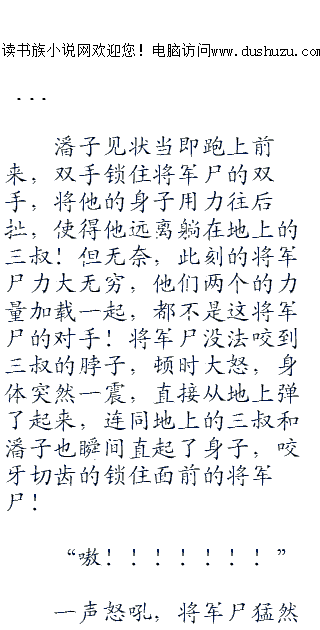 读书族小说网欢迎您！电脑访问www.dushuzu.com
...
潘子见状当即跑上前
来，双手锁住将军尸的双
手，将他的身子用力往后
扯，使得他远离躺在地上的
三叔！但无奈，此刻的将军
尸力大无穷，他们两个的力
量加载一起，都不是这将军
尸的对手！将军尸没法咬到
三叔的脖子，顿时大怒，身
体突然一震，直接从地上弹
了起来，连同地上的三叔和
潘子也瞬间直起了身子，咬
牙切齿的锁住面前的将军
尸！
“嗷！！！！！！！”
一声怒吼，将军尸猛然